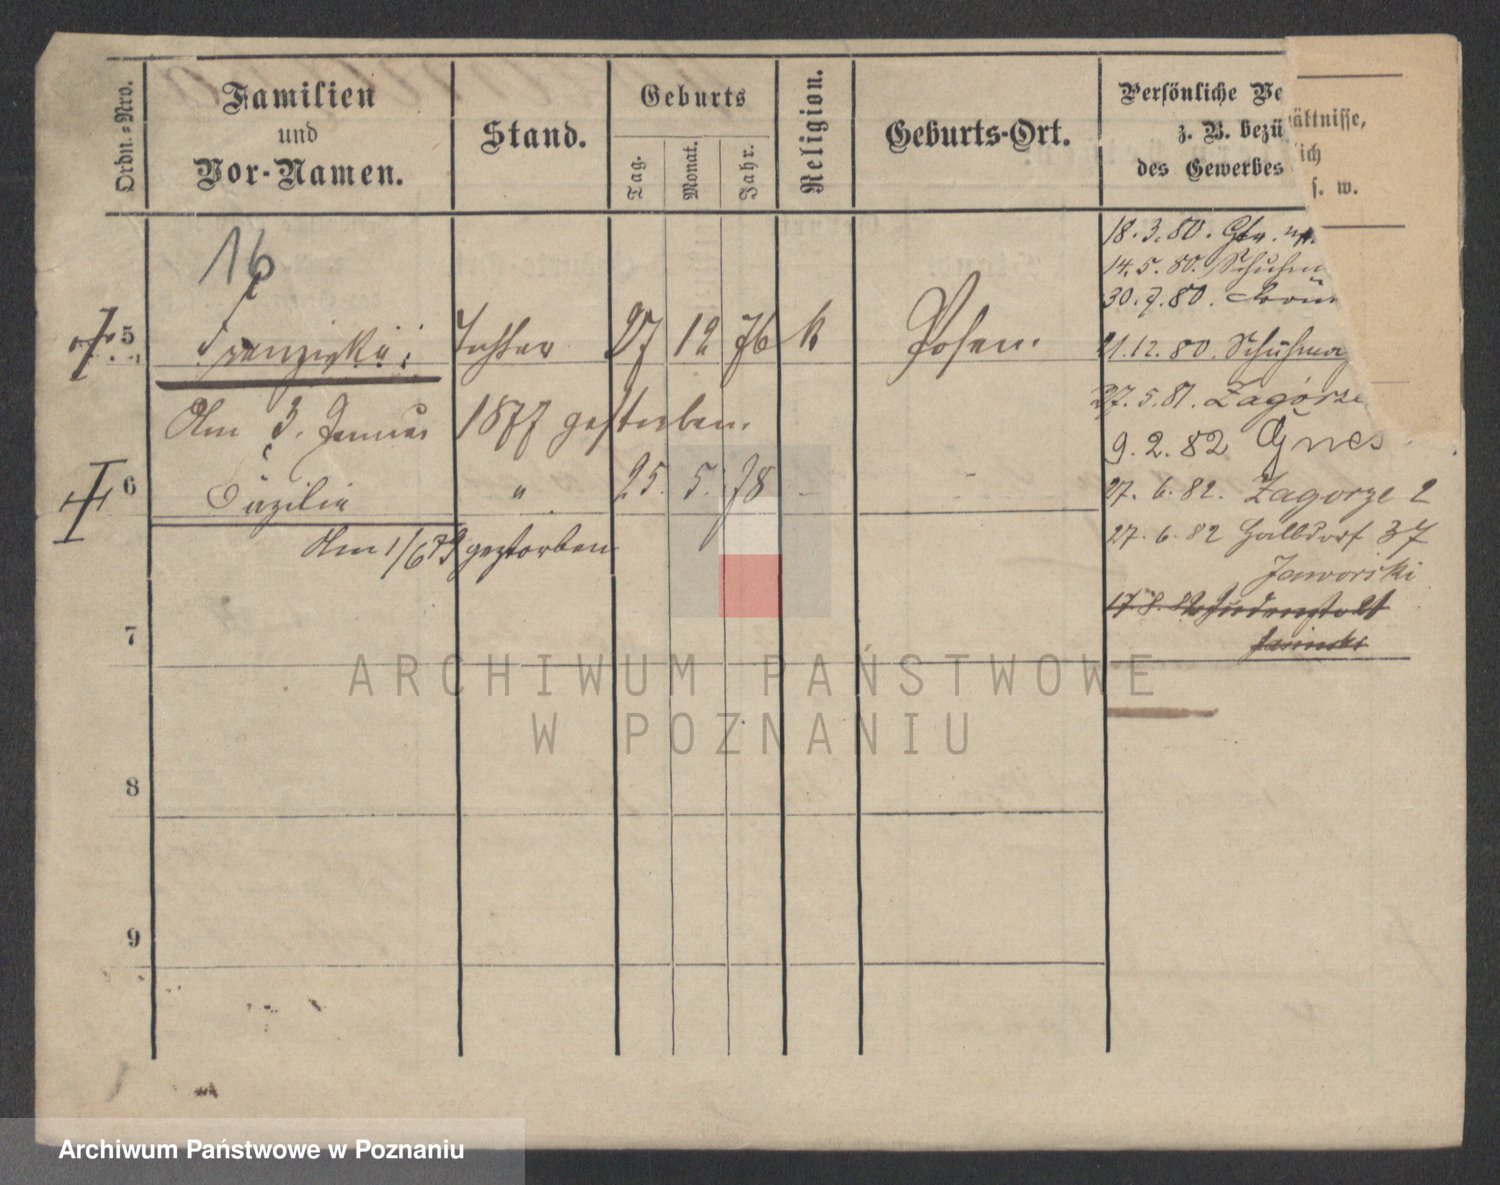 Ordn.=Nro.
Familien
und
Vor-Namen.
Stand.
Geburts
Tag.
Monat.
Jahr.
Religion.
Geburts-Ort.
Persönliche Ve
ältnisse,
z. B. bezü
lich
des Gewerbes
s. w.
16
18.3.80.
14.5.80. Schuhm
30.7.80.
5 Franziska Tochter 27 12 76 k Posen.
21.12.80. Schuhmag
Am 3. Januar 1877 gestorben.
27.5.81. Zagórze
9.2.82 Gnes
6 Cäzilie " 25. 5. 78 -
27.6.82. Zagorze 2
Am 1/6 79 gestorben.
27.6.82 Halbdorf 37
Jaworski
7
8
9
ARCHIWUM PAŃSTWOWE
W POZNANIU
Archiwum Państwowe w Poznaniu